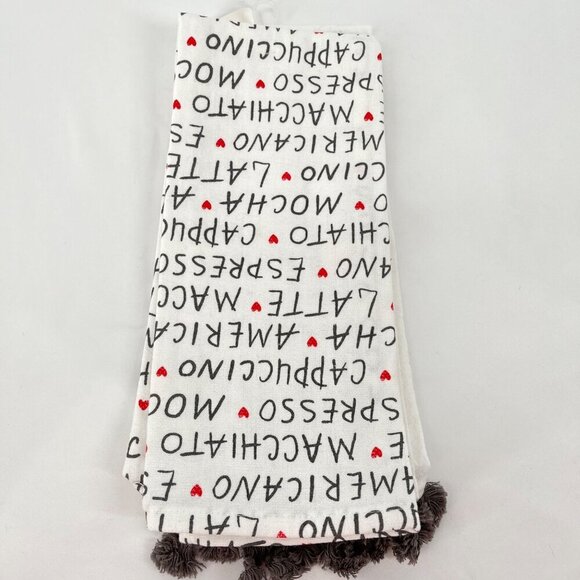 CCINO LATT
AMERICANO ♥ ES
E ♥ MACCHIATO C
SPRESSO ♥ MOC
♥ CAPPUCCINO ♥
CHA ♥ AMERICA
♥ LATTE ♥ MACC
ANO ♥ ESPRESSO
CHIATO ♥ CAPPUC
O ♥ MOCHA ♥ A
CCINO ♥ LATTE
AMERICANO ♥ ES
E ♥ MACCHIATO ♥
SPRESSO ♥ MOC
CAPPUCCINO
AMERICA